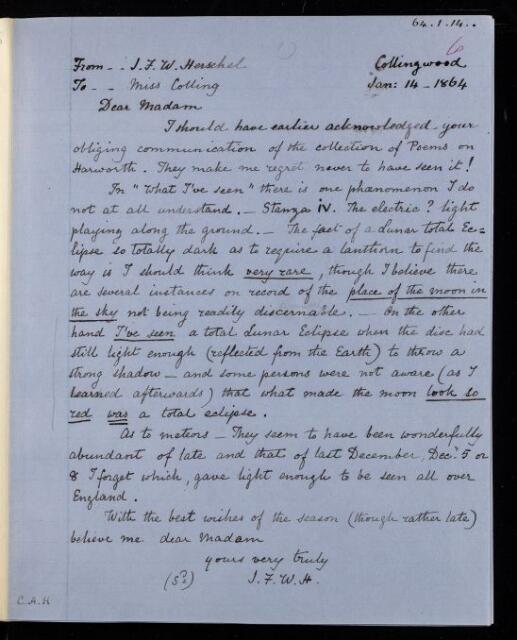 64.1.14..
6
From - . J. F. W. Herschel
Collingwood
To - - Miss Colling
Jan: 14 - 1864
Dear Madam
I should have earlier acknowledged your
obliging communication of the collection of Poems on
Harworth. They make me regret never to have seen it!
In "What I've seen" there is one phænomenon I do
not at all understand. - Stanza iv. The electric? light
playing along the ground. - The fact of a lunar total Ec=
lipse so totally dark as to require a lanthorn to find the
way is I should think very rare, though I believe there
are several instances on record of the place of the moon in
the sky not being readily discernable. - On the other
hand I've seen a total Lunar Eclipse when the disc had
still light enough (reflected from the Earth) to throw a
strong shadow - and some persons were not aware (as I
learned afterwards) that what made the moon look so
red was a total eclipse.
As to meteors - They seem to have been wonderfully
abundant of late and that of last December, Decr. 5 or
8 I forget which, gave light enough to be seen all over
England.
With the best wishes of the season (though rather late)
believe me dear Madam
yours very truly
J. F. W. H.
C.A.H